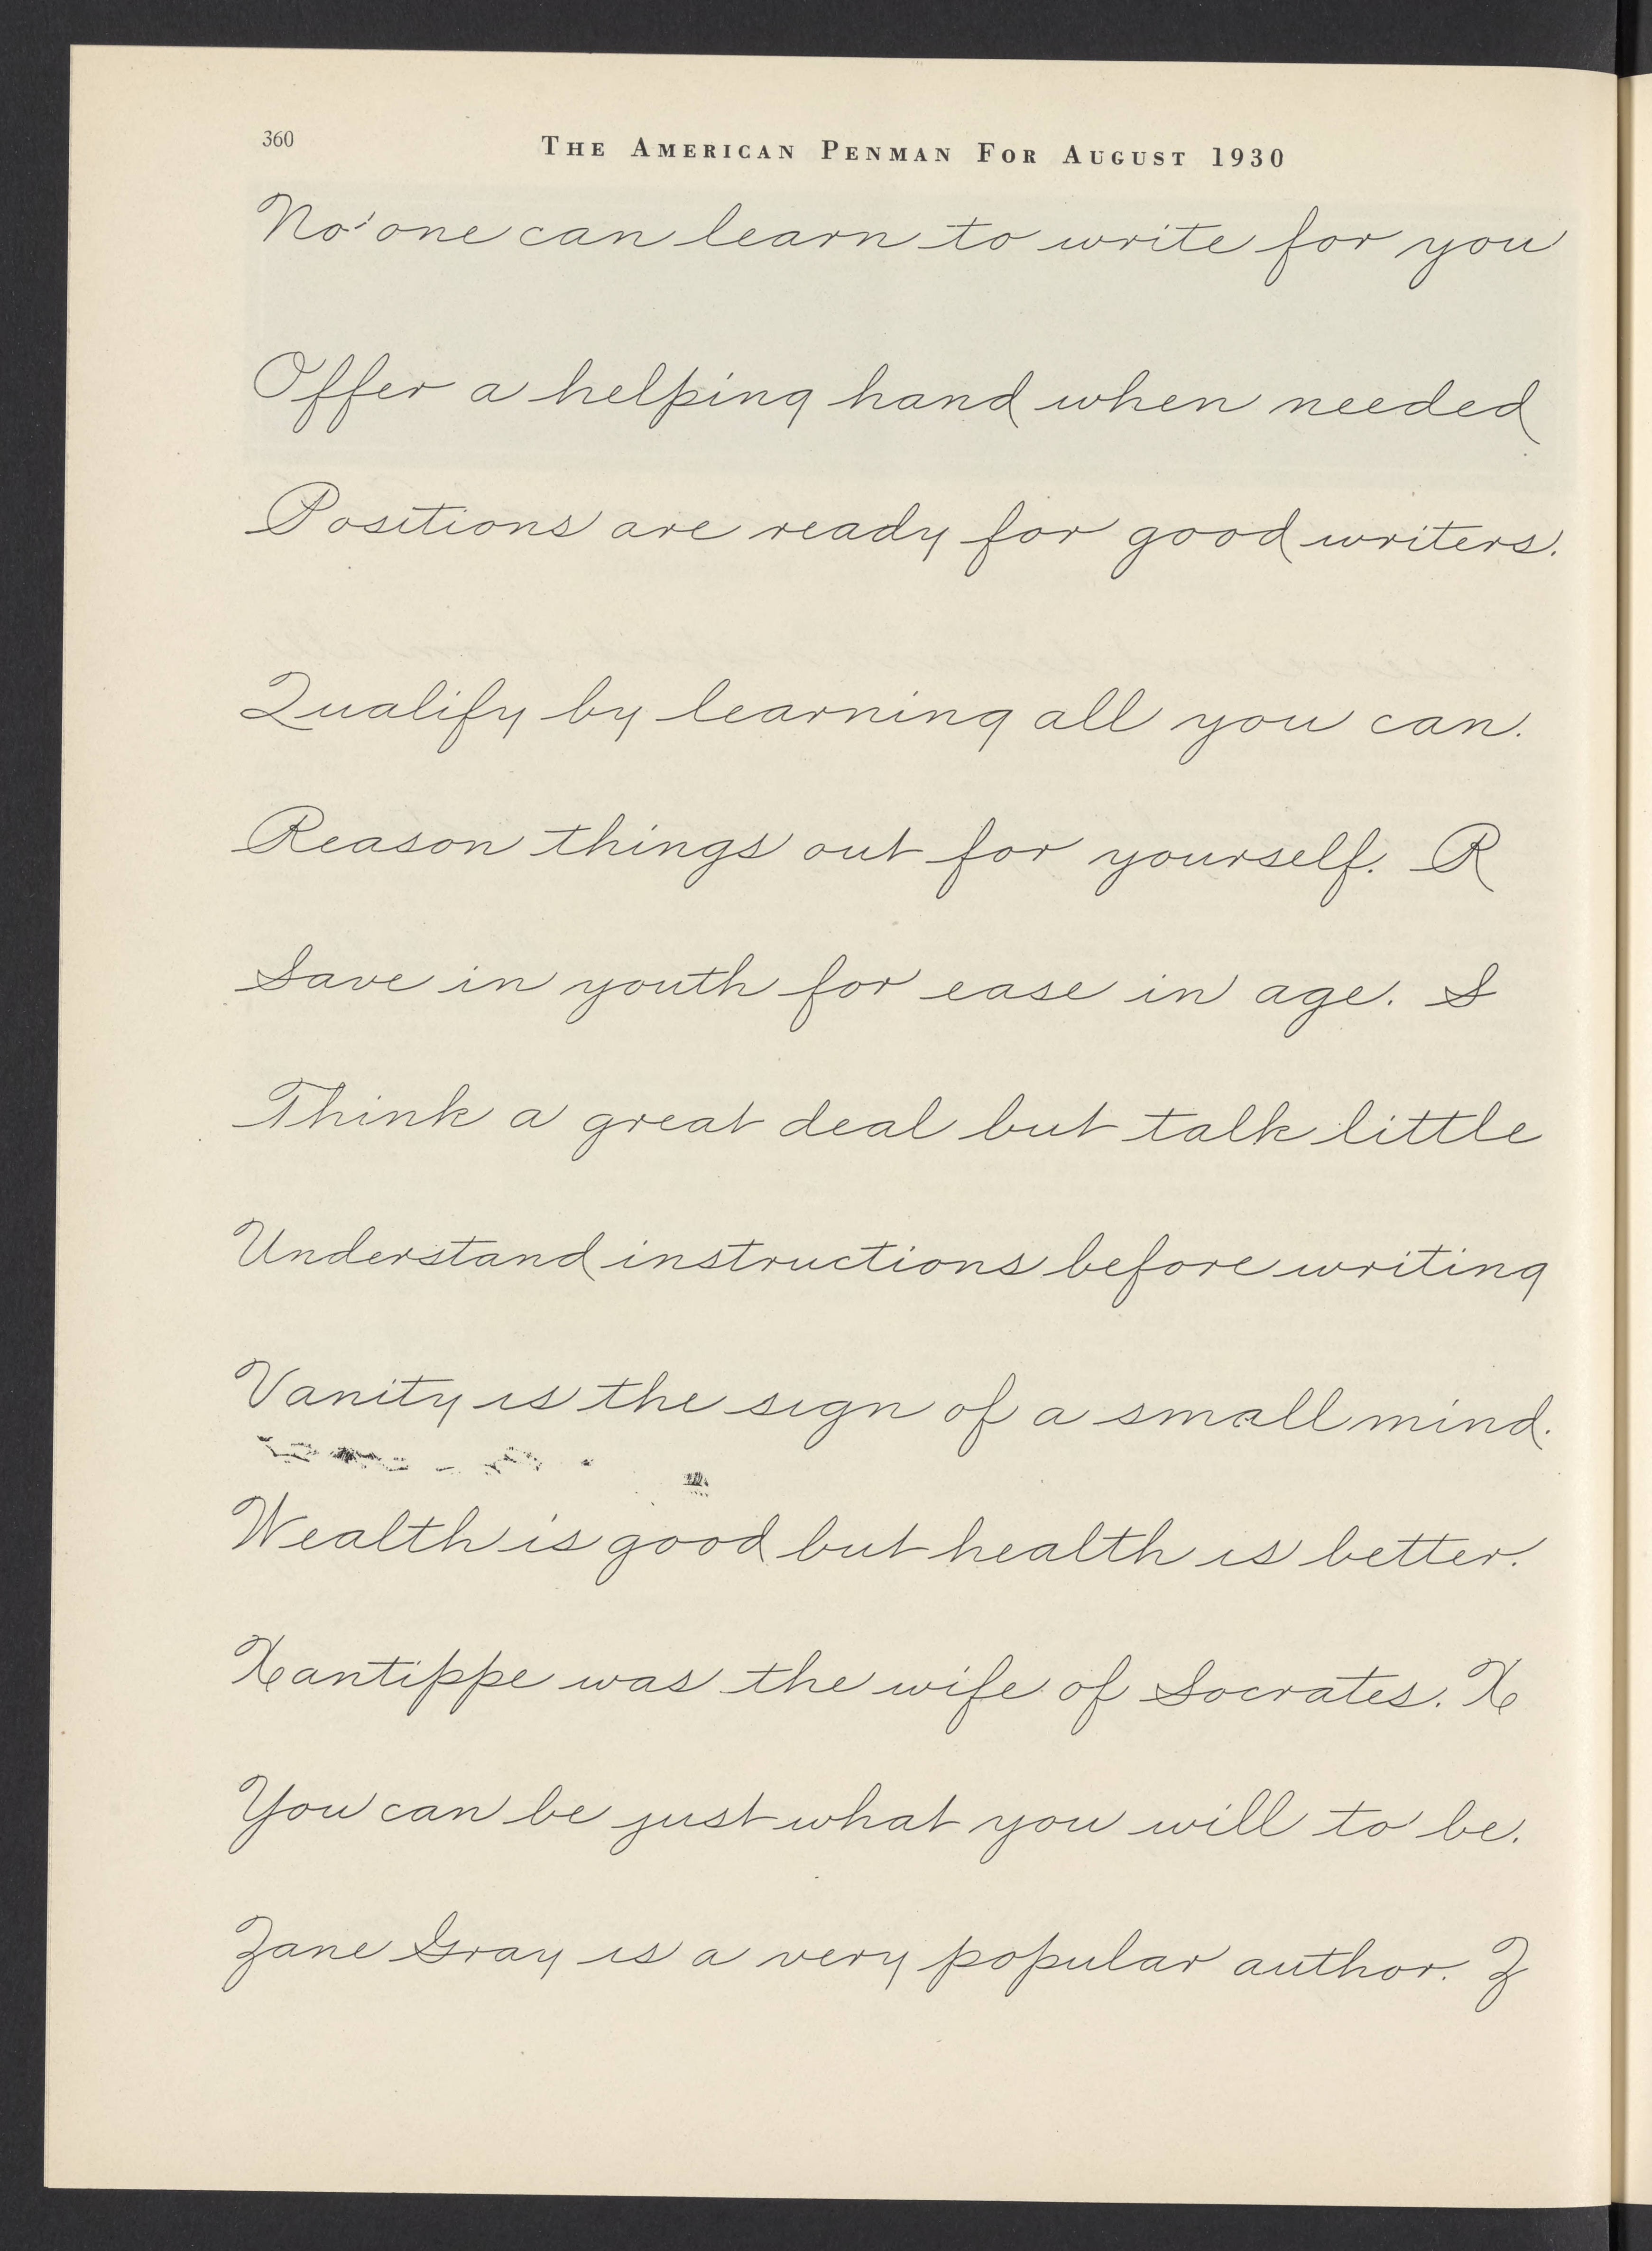 360
THE AMERICAN PENMAN FOR AUGUST 1930
No one can learn to write for you
Offer a helping hand when needed
Positions are ready for good writers.
Qualify by learning all you can.
Reason things out for yourself. R
Save in youth for ease in age. S
Think a great deal but talk little
Understand instructions before writing
Vanity is the sign of a small mind.
Wealth is good but health is better.
Xantippe was the wife of Socrates. X
You can be just what you will to be.
Zane Gray is a very popular author. Z